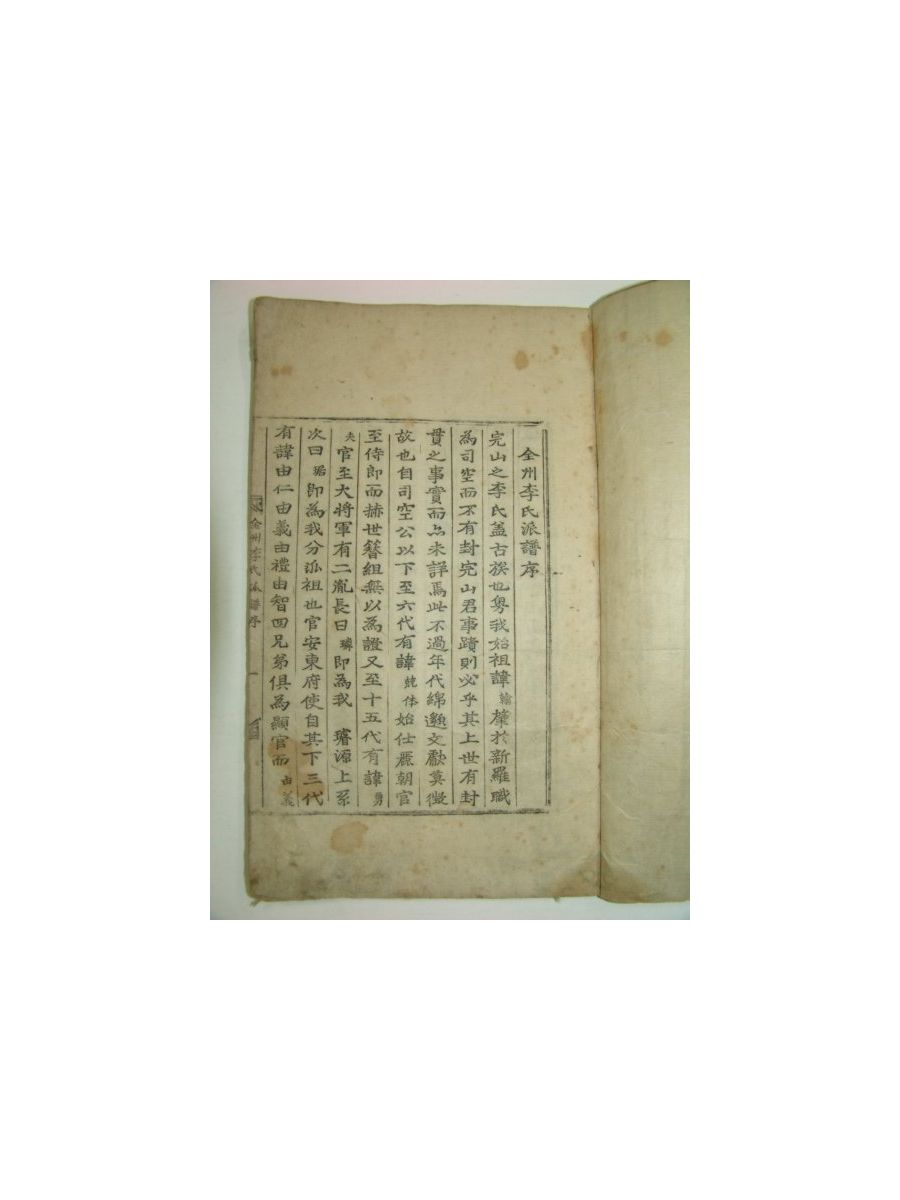 全州李氏派譜序
完山之李氏盖古族也粤我始祖諱翰肇於新羅職
為司空而不有封完山君事蹟則必乎其上世有封
貫之事實而亦未詳焉此不過年代綿邈文獻莫徵
故也自司空公以下至六代有諱兢休始仕麗朝官
至侍郎而赫世簪組無以為證又至十五代有諱勇
夫官至大將軍有二胤長曰璘即為我 璿源上系
次曰琚即為我分派祖也官安東府使自其下三代
有諱由仁由義由禮由智四兄弟俱為顯官而由義
全州李氏派譜序 一